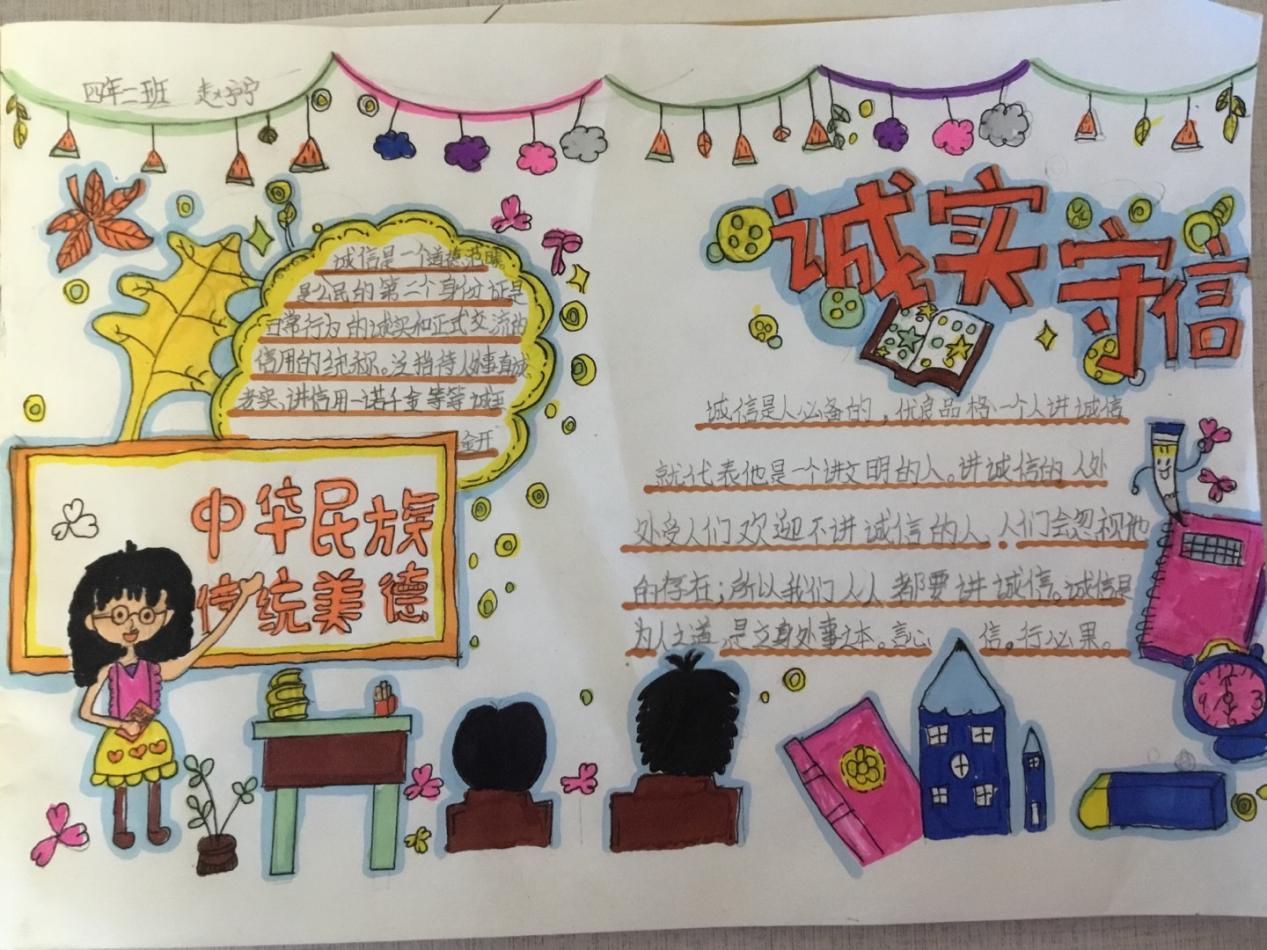 四年二班 赵宁宁
诚实守信
诚信是一个道德范畴
是公民的第二个身份证是
日常行为的诚实和正式交流的
信用的统称。泛指待人处事真诚
老实、讲信用一诺千金等等诚至
金开
中华民族
传统美德
诚信是人必备的,优良品格一个人讲诚信
就代表他是一个讲文明的人。讲诚信的人处
处受人们欢迎不讲诚信的人,人们会忽视他
的存在;所以我们人人都要讲诚信。诚信是
为人之道,是立身处事之本。言必信。行必果。